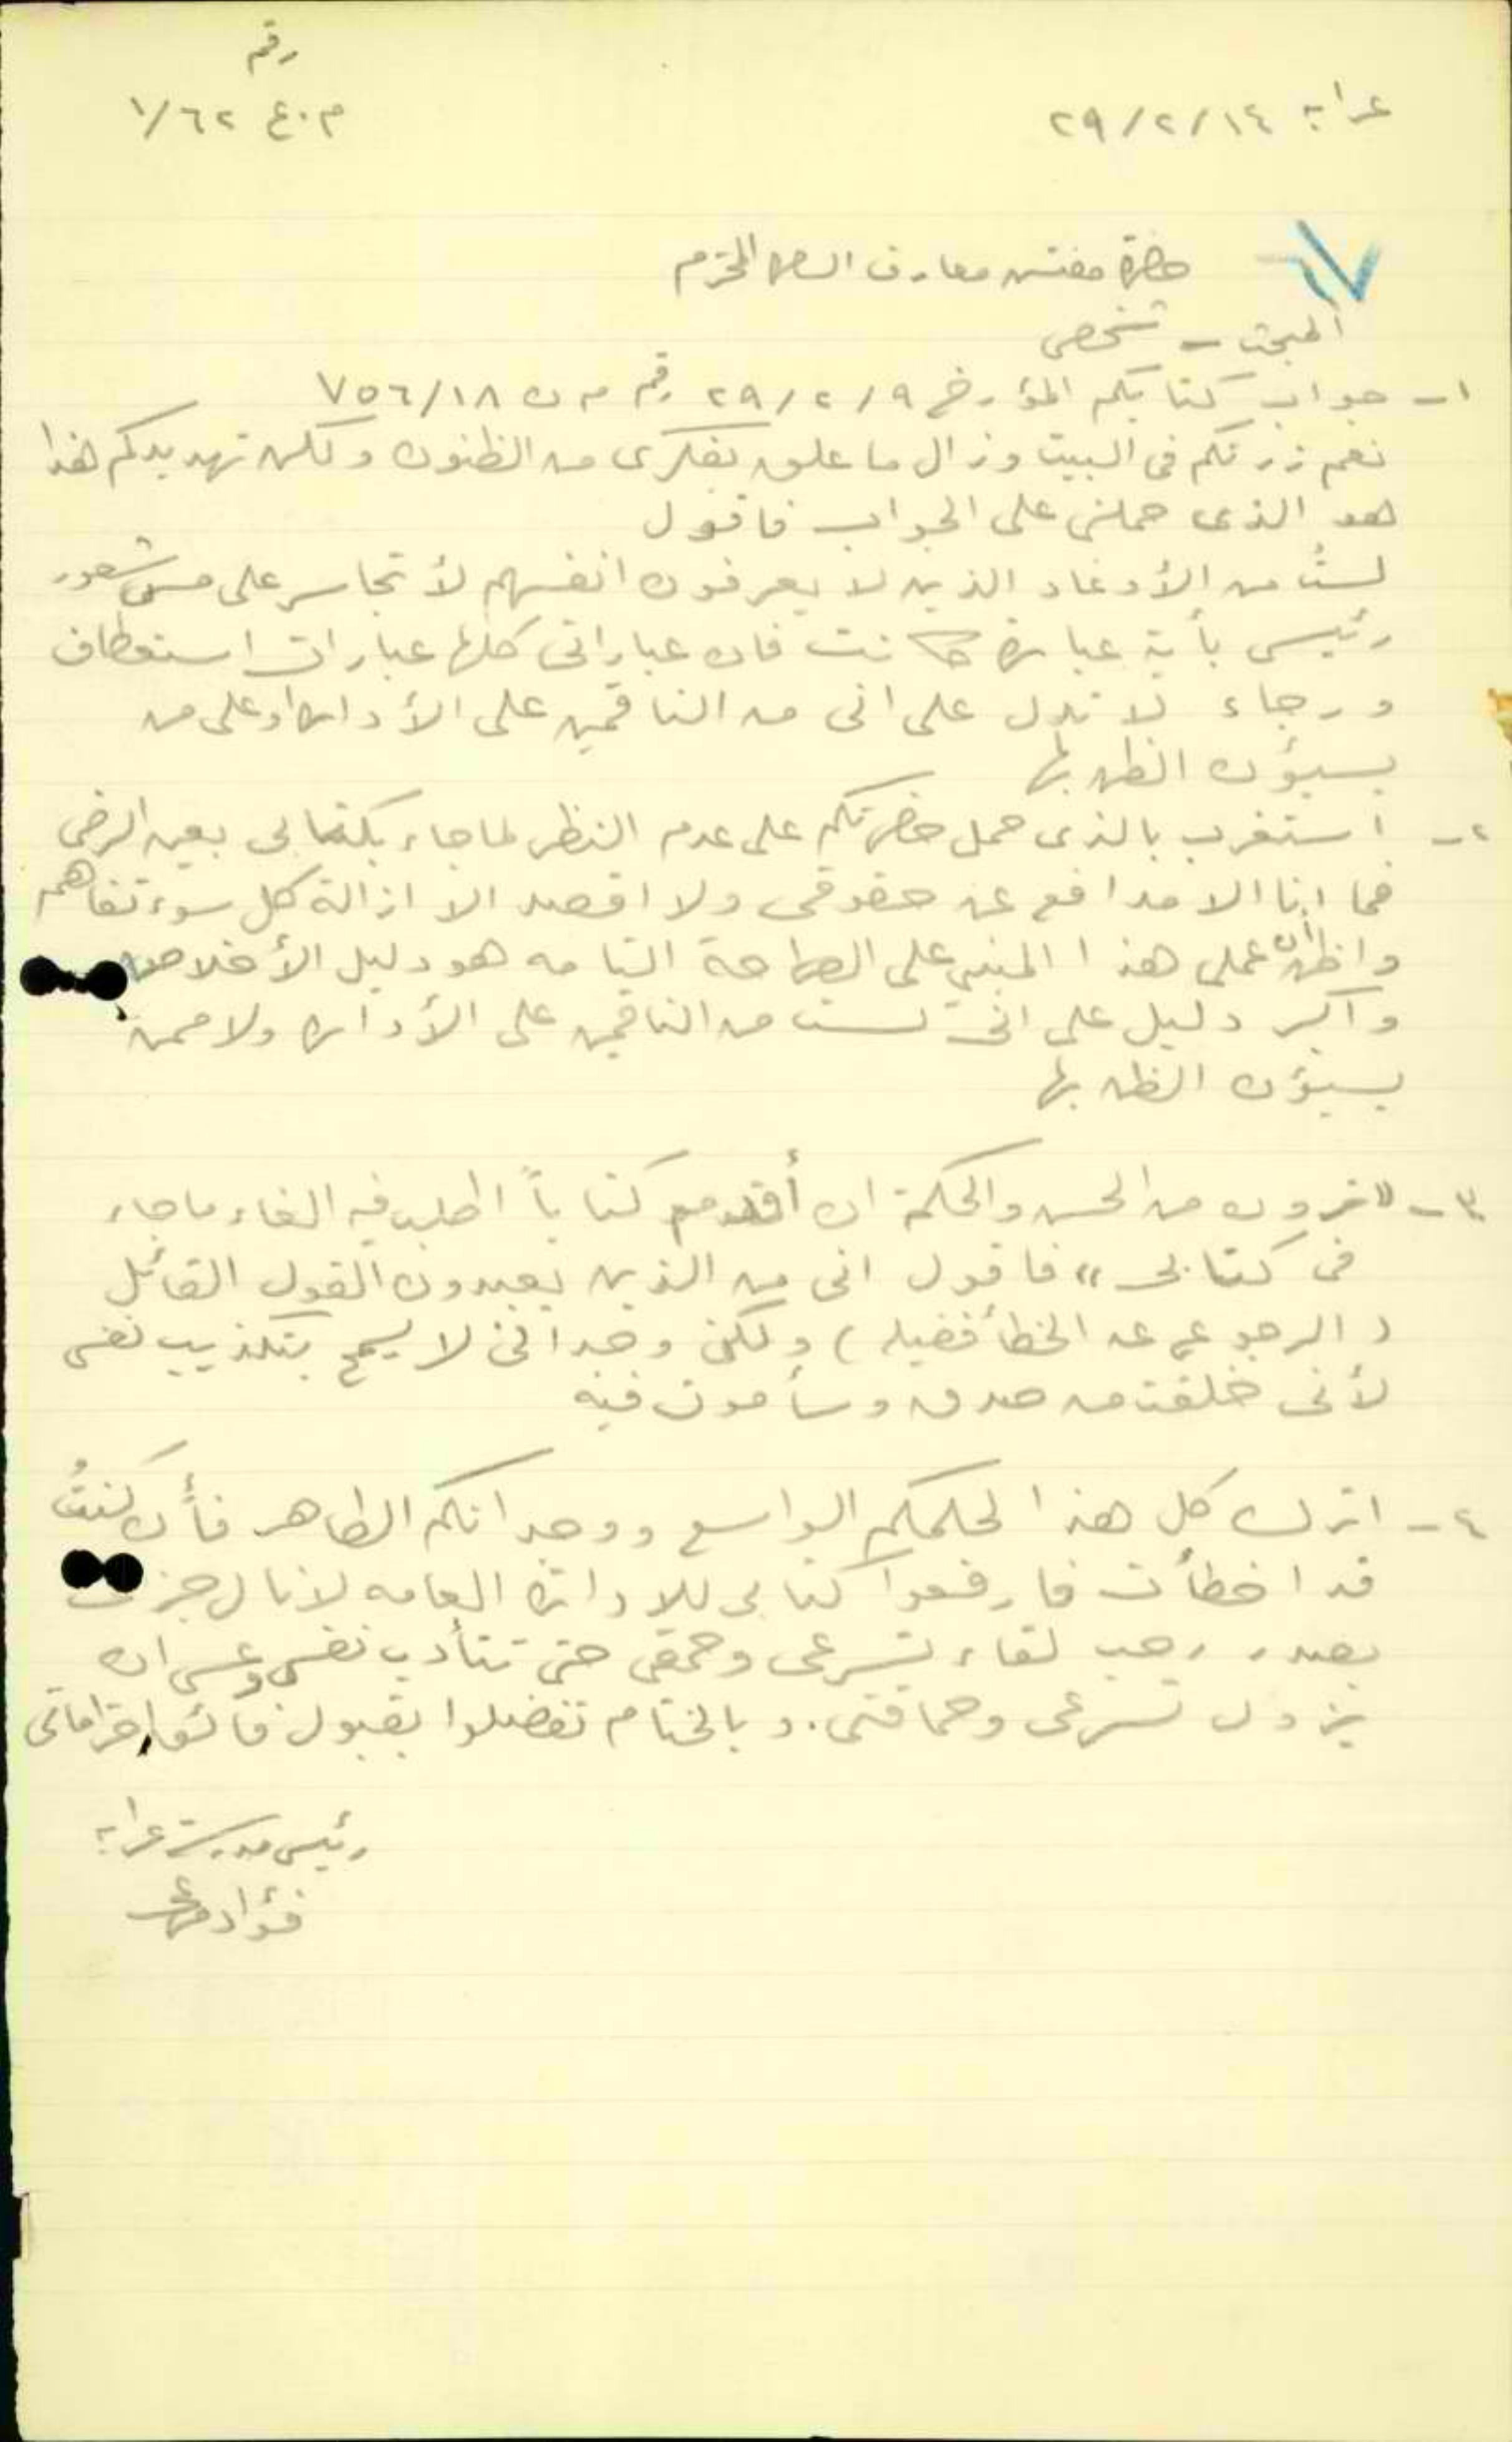 رقم
عرابه ١٤/٢/٢٩
م.ع ١/٦٢
حضرة مفتش معارف السامرة المحترم
المبحث - شخصي
١- جواب كتابكم المؤرخ ٢٩/٢/٩ رقم م ن ٧٥٦/١٨
نعم زرتكم في البيت وزال ما علق بفكري من الظنون ولكن تهديدكم هذا
هو الذي حملني على الجواب فاقول
لستُ من الأوغاد الذين لا يعرفون انفسهم لأتجاسر على مس شعور
رئيسي بأية عبارة كانت فان عباراتي كلها عبارات استعطاف
ورجاء لا تدل على اني من الناقمين على الأدارة او على من
يسيؤن الظن بها
٢- استغرب بالذي حمل حضرتكم على عدم النظر لما جاء بكتابي بعين الرضى
فما انا الا مدافع عن حقوقي ولا اقصد الا ازالة كل سوء تفاهم
واظن أن عملي هذا المبني على الصراحة التامه هو دليل الأخلاص
واكبر دليل على اني لست من الناقمين على الأدارة ولا ممن
يسيؤن الظن بها
٣- "ترون من الحسن والحكمة ان أقدم كتاباً اطلب فيه الغاء ما جاء
في كتابي" فاقول اني من الذين يعبدون القول القائل
(الرجوع عن الخطأ فضيله) ولكن وجداني لا يسمح بتكذيب نفسي
لأني خلقت من صدق وسأموت فيه
٤- اترك كل هذا لحلمكم الواسع ووجدانكم الطاهر فأن كنتُ
قد اخطأت فارفعوا كتابي للادارة العامه لانال جزائي
بصدر رحب لقاء تسرعي وحمقي حتى تتأدب نفسي وعسى ان
يزول تسرعي وحماقتي. وبالختام تفضلوا بقبول فائق احتراماتي
رئيس مدرسة عرابه
فؤاد